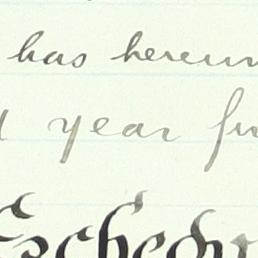 has hereun
year fir
Schedu